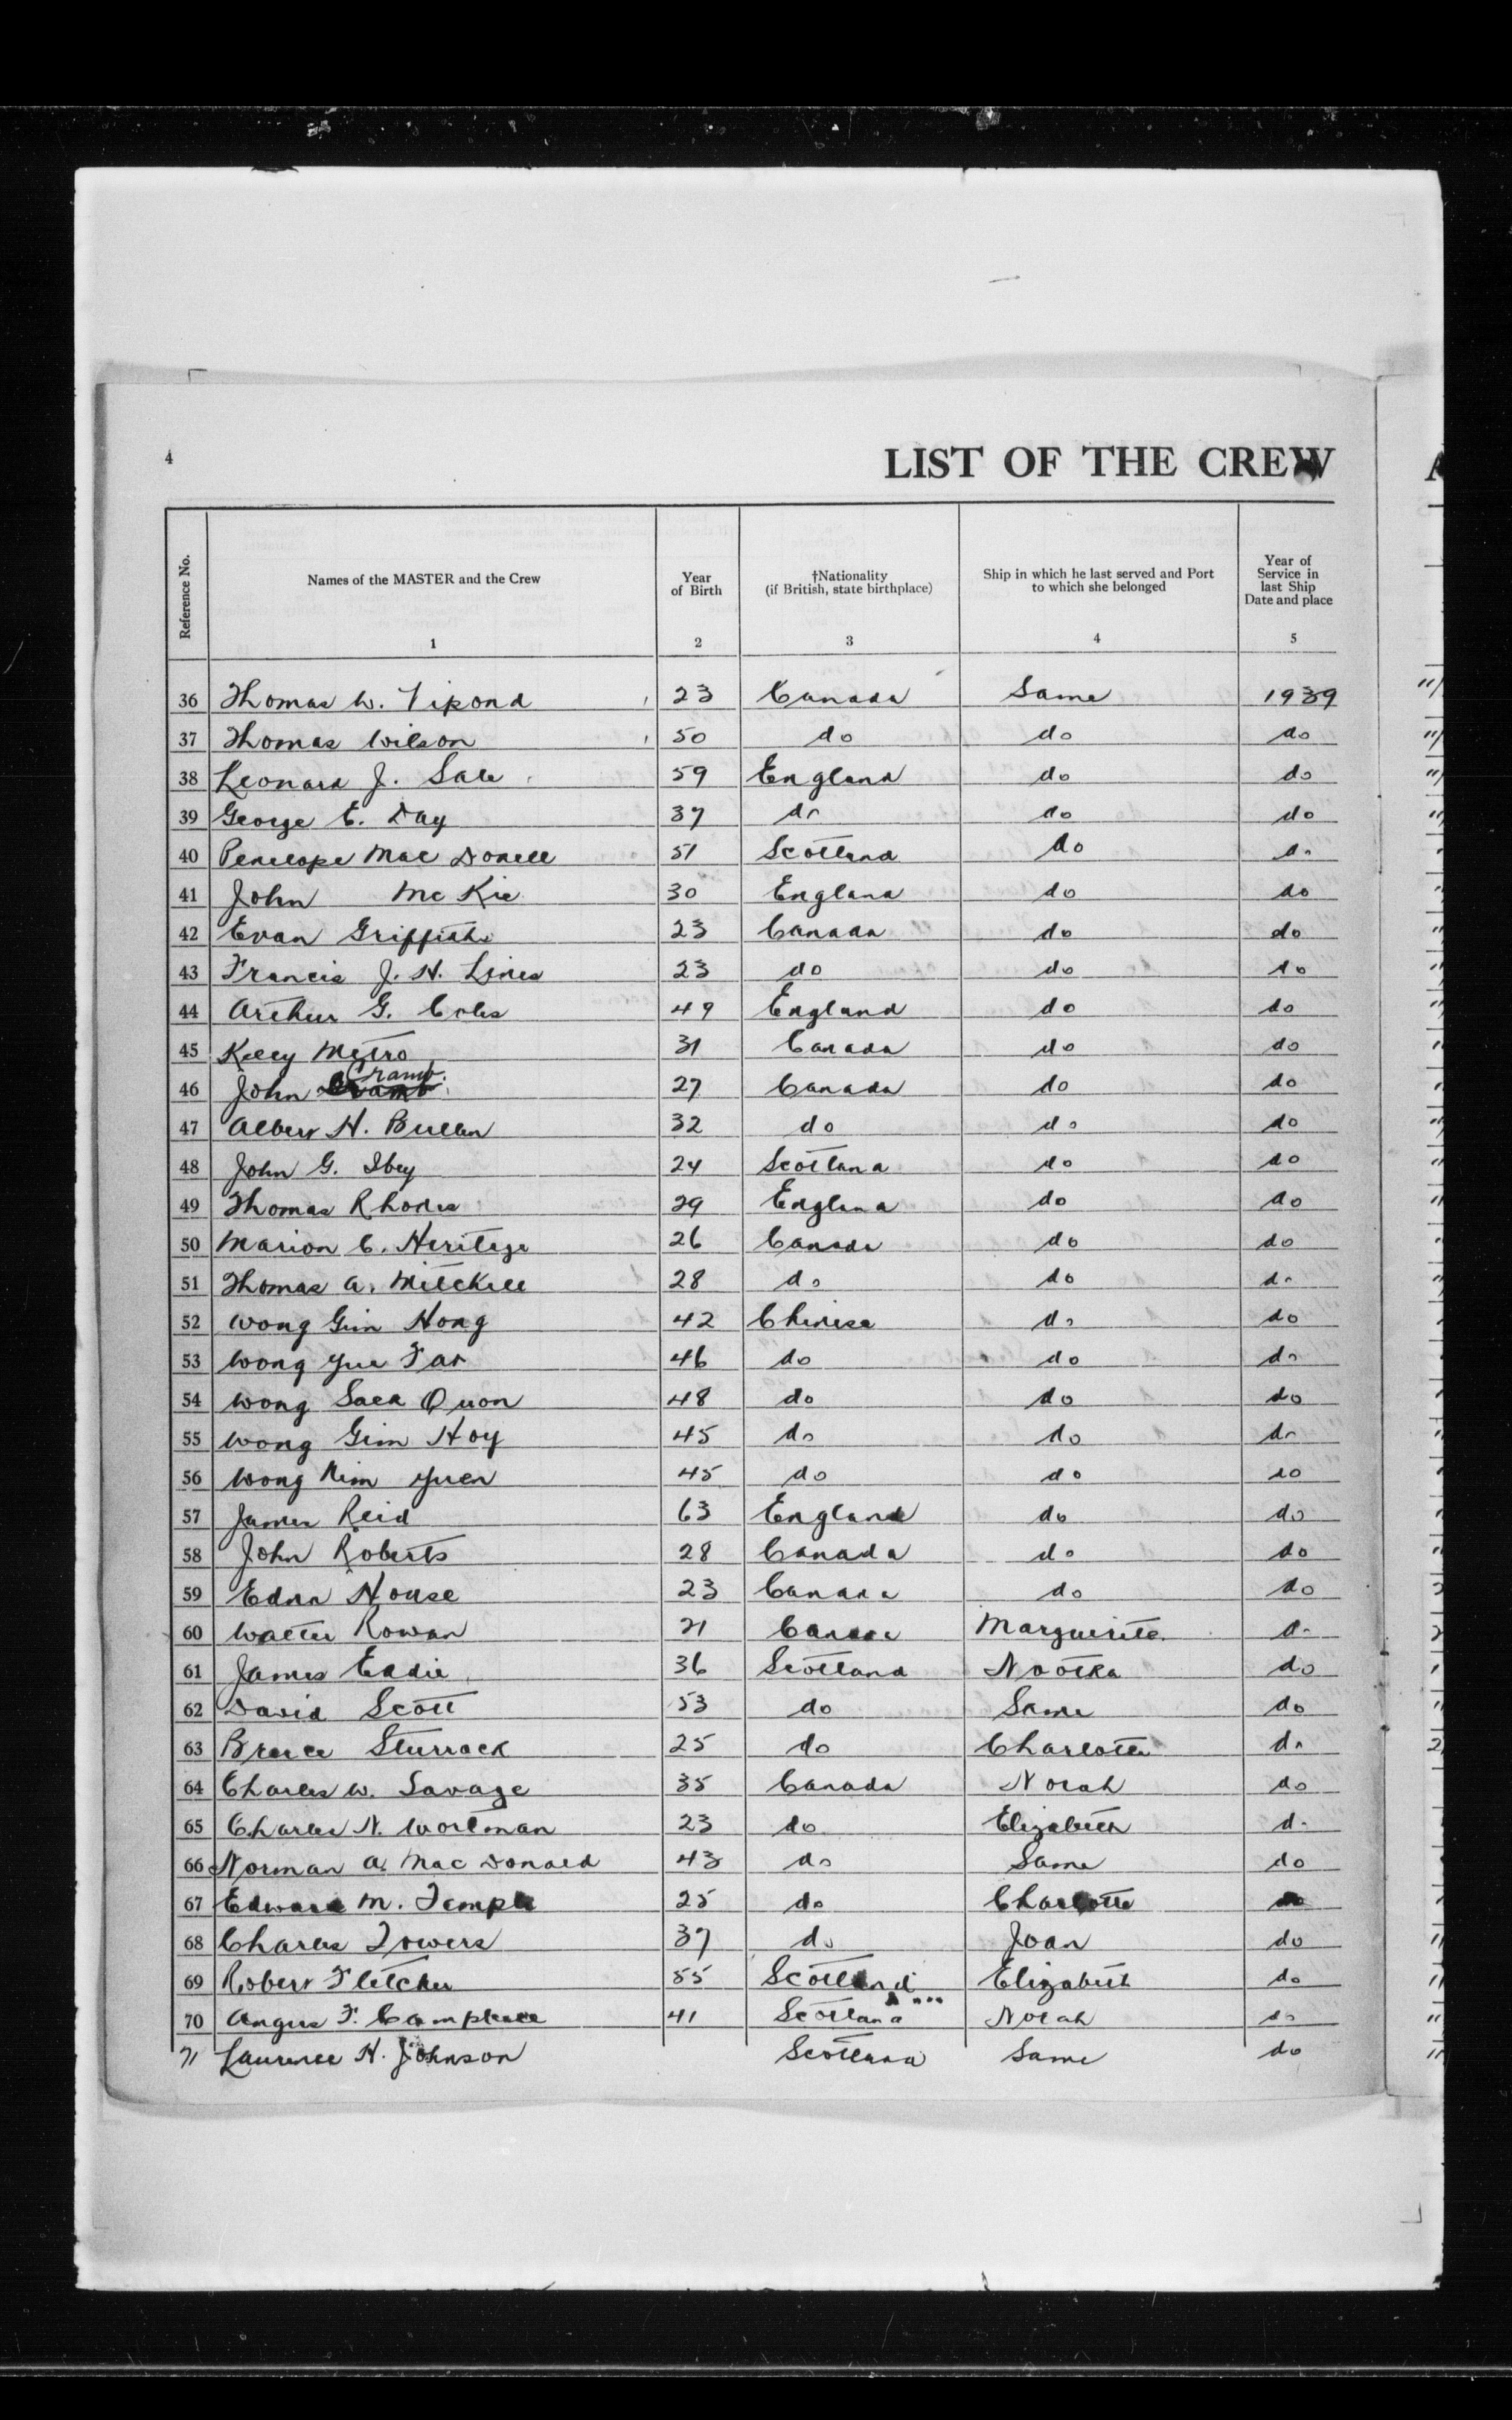 4
LIST OF THE CREW
Reference No.
Names of the MASTER and the Crew
1
Year of Birth
2
†Nationality (if British, state birthplace)
3
Ship in which he last served and Port to which she belonged
4
Year of Service in last Ship Date and place
5
36 Thomas W. Vipond 23 Canada Same 1939
37 Thomas Wilson 50 do do do
38 Leonard J. Sale 59 England do do
39 George E. Day 37 do do do
40 Penelope Mac Donell 51 Scotland do do
41 John Mc Kie 30 England do do
42 Evan Griffiths 23 Canada do do
43 Francis J. H. Lines 23 do do do
44 Arthur G. Coles 49 England do do
45 Kelly Metro 31 Canada do do
46 John Cramb 27 Canada do do
47 Albert H. Bullen 32 do do do
48 John G. Ibey 24 Scotland do do
49 Thomas Rhodes 29 England do do
50 Marion C. Heritage 26 Canada do do
51 Thomas A. Mitchell 28 do do do
52 Wong Gim Hong 42 Chinese do do
53 Wong Yue 46 do do do
54 Wong Sack Quon 48 do do do
55 Wong Gim Hoy 45 do do do
56 Wong Yuen 45 do do do
57 James Reid 63 England do do
58 John Roberts 28 Canada do do
59 Edna House 23 Canada do do
60 Walter Rowan 21 Canada Marguerite do
61 James Eddie 36 Scotland Nootka do
62 David Scott 53 do Same do
63 Bruce Sturrock 25 do Charlotte do
64 Charles W. Savage 35 Canada Norah do
65 Charles N. Wortman 23 do Elizabeth do
66 Norman A. Mac Donald 43 do Same do
67 Edward M. Temple 25 do Charlotte do
68 Charles Towers 37 do Joan do
69 Robert Fletcher 55 Scotland Elizabeth do
70 Angus F. Campbell 41 Scotland Norah do
71 Laurence H. Johnson Scotland Same do